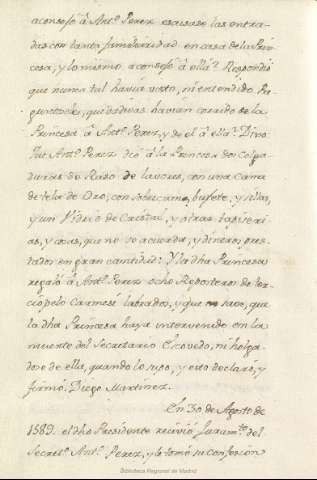 aconsejò à Antº. Perez escusase las entra-
das con tanta familiaridad en casa de la Prin-
cesa, y lo mismo aconsejò à ella?. Respondiò
que nunca tal havia visto, ni entendido. Pre-
guntado, què dadivas havian corrido de la
Princesa à Antº. Perez, y de el à ella?. Dixo
Que Antº. Perez diò à la Princesa dos colga-
duras de Raso de lavores, con una Cama
de tela de Oro, con sobrecama, bufete, y sillas,
y un Vidrio de Cristal, y otras tapizerias
, y cosas, que no se acuerda, y dineros pres-
tados en gran cantidad: Y la dha Princesa
regalò à Antº. Perez ocho Reposteros de ter-
ciopelo Carmesi labrados, y que no save, que
la dha Princesa haya intervenido en la
muerte del Secretario Escovedo, ni holga-
dose de ella, quando lo supo, y esto declarò, y
firmò. Diego Martinez.
En 30 de Agosto de
1589. el dho Presidente reciviò Juramtº. del
Secretº. Antº. Perez, y le tomò su confesion
Biblioteca Regional de Madrid